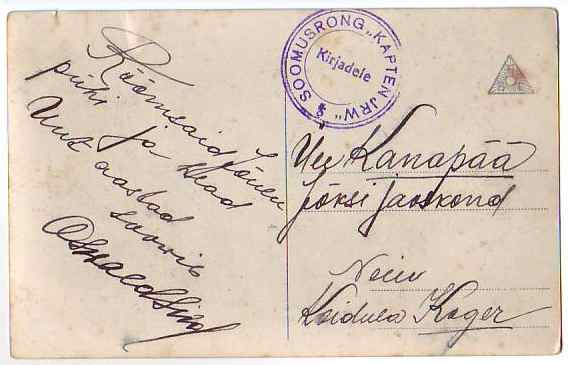 Rõõmsaid Jõulu
pühi ja head
Uut aastad
soovib
SOOMUSRONG „KAPTEN IRW"
Kirjadele
Uue Kanapää
Jõksi jaoskond
Neiu
Koidula Koger